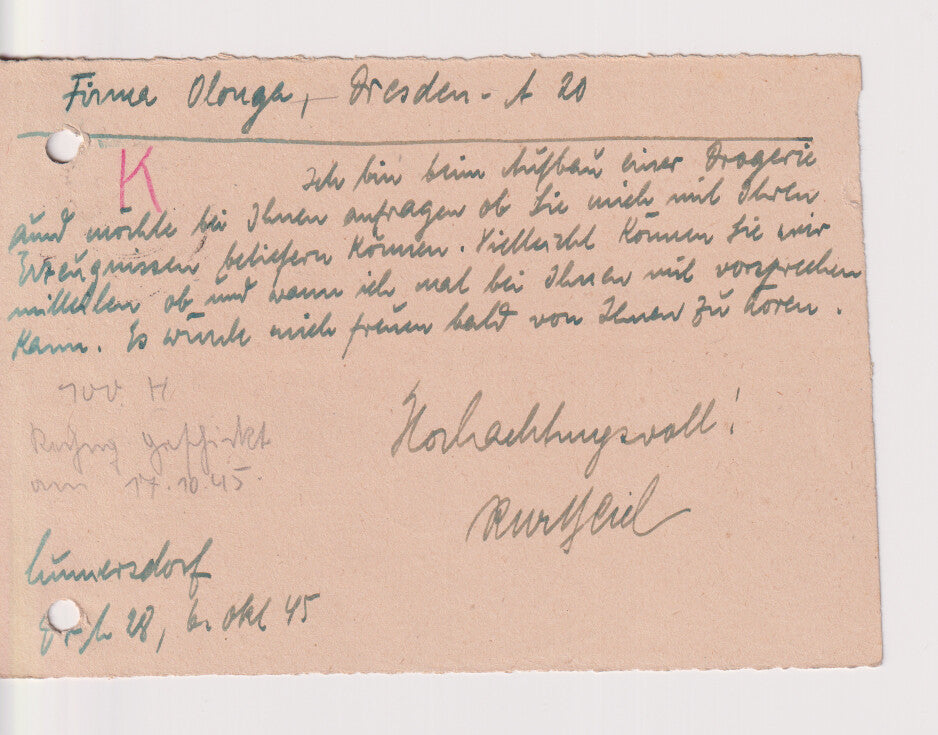 Firma Olonga, - Dresden - A 20
K
Ich bin beim Aufbau einer Drogerie
und möchte bei Ihnen anfragen ob Sie mich mit Ihren
Erzeugnissen beliefern können. Vielleicht können Sie mir
mitteilen ob und wann ich mal bei Ihnen mit vorsprechen
kann. Es würde mich freuen bald von Ihnen zu hören.
Hochachtungsvoll!
geschickt
am 17.10.45
Kurt
Cunnersdorf
28, 6. Okt 45